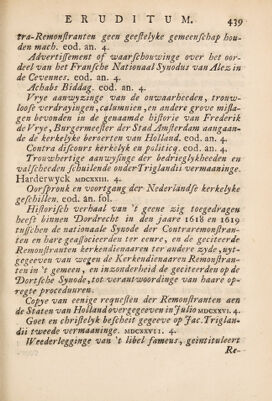 ERUDITUM. 439
tra-Remonstranten geen geestelyke gemeenschap hou-
den mach. eod. an. 4.
Advertissement of waarschouwinge over het oor-
deel van het Fransche Nationaal Synodus van Alez in
de Cevennes. eod. an. 4.
Achabs Biddag. eod. an. 4.
Vrye aanwyzinge van de onwaarheeden, trouw-
loose verdrayingen, calumnien, en andere grove mis-
gen bevonden in de genaamde historie van Frederik
de Vrye, Burgermeester der Stad Amsterdam aangaan-
de de kerkelyke beroerten van Holland. eod. an. 4.
Contra discours kerkelyk en politicq. eod. an. 4.
Trouwhertige aanwysinge der bedrieglykheeden en
valscheeden schuilende onder Triglandii vermaaninge.
Harderwyck MDCXXIII. 4.
Oorspronk en voortgang der Nederlandse kerkelyke
geschillen. eod. an. fol.
Historisch verhaal van 't geene zig toegedragen
heeft binnen Dordrecht in den jaare 1618 en 1619
tusschen de nationaale Synode der Contraremonstran-
ten en hare geassocieerden ter eenre, en de geciteerde
Remonstranten kerkendienaaren ter andere zyde, uyt-
gegeeven van wegen de Kerkendienaaren Remonstran-
ten in 't gemeen, en inzonderheid de geciteerden op de
Dortsche Synode, tot verantwoordinge van haare op-
regte proceduuren.
Copye van eenige requesten der Remonstranten aen
de Staten van Holland overgegeeven in Julio MDCXXVI. 4.
Goet en christelyk bescheit gegeeve op Jac. Triglan-
dii tweede vermaaninge. MDCXXVII. 4.
Weederlegginge van 't libel fameus, geintituleert
Re-